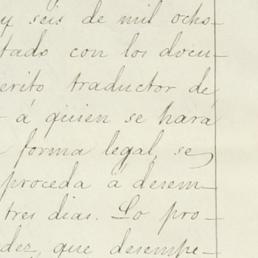 y seis de mil ocho-
tado con los docu-
erito traductor de
á quien se hará
forma legal, se
proceda á desem-
tres dias. Lo pro-
dez, que desempe-